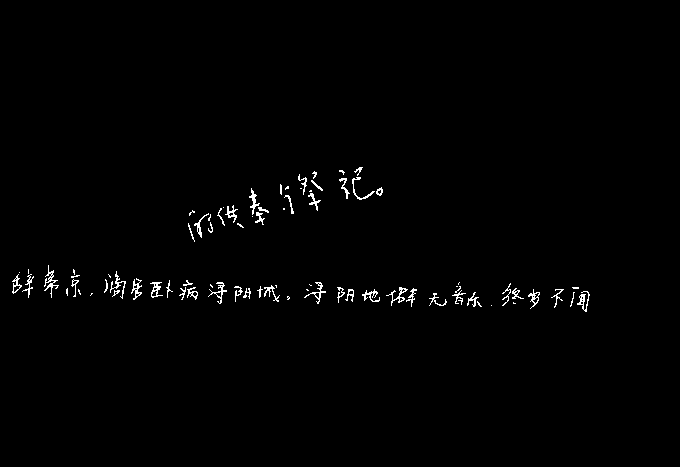 的供奉与祭祀。
辞帝京，谪居卧病浔阳城。浔阳地僻无音乐，终岁不闻